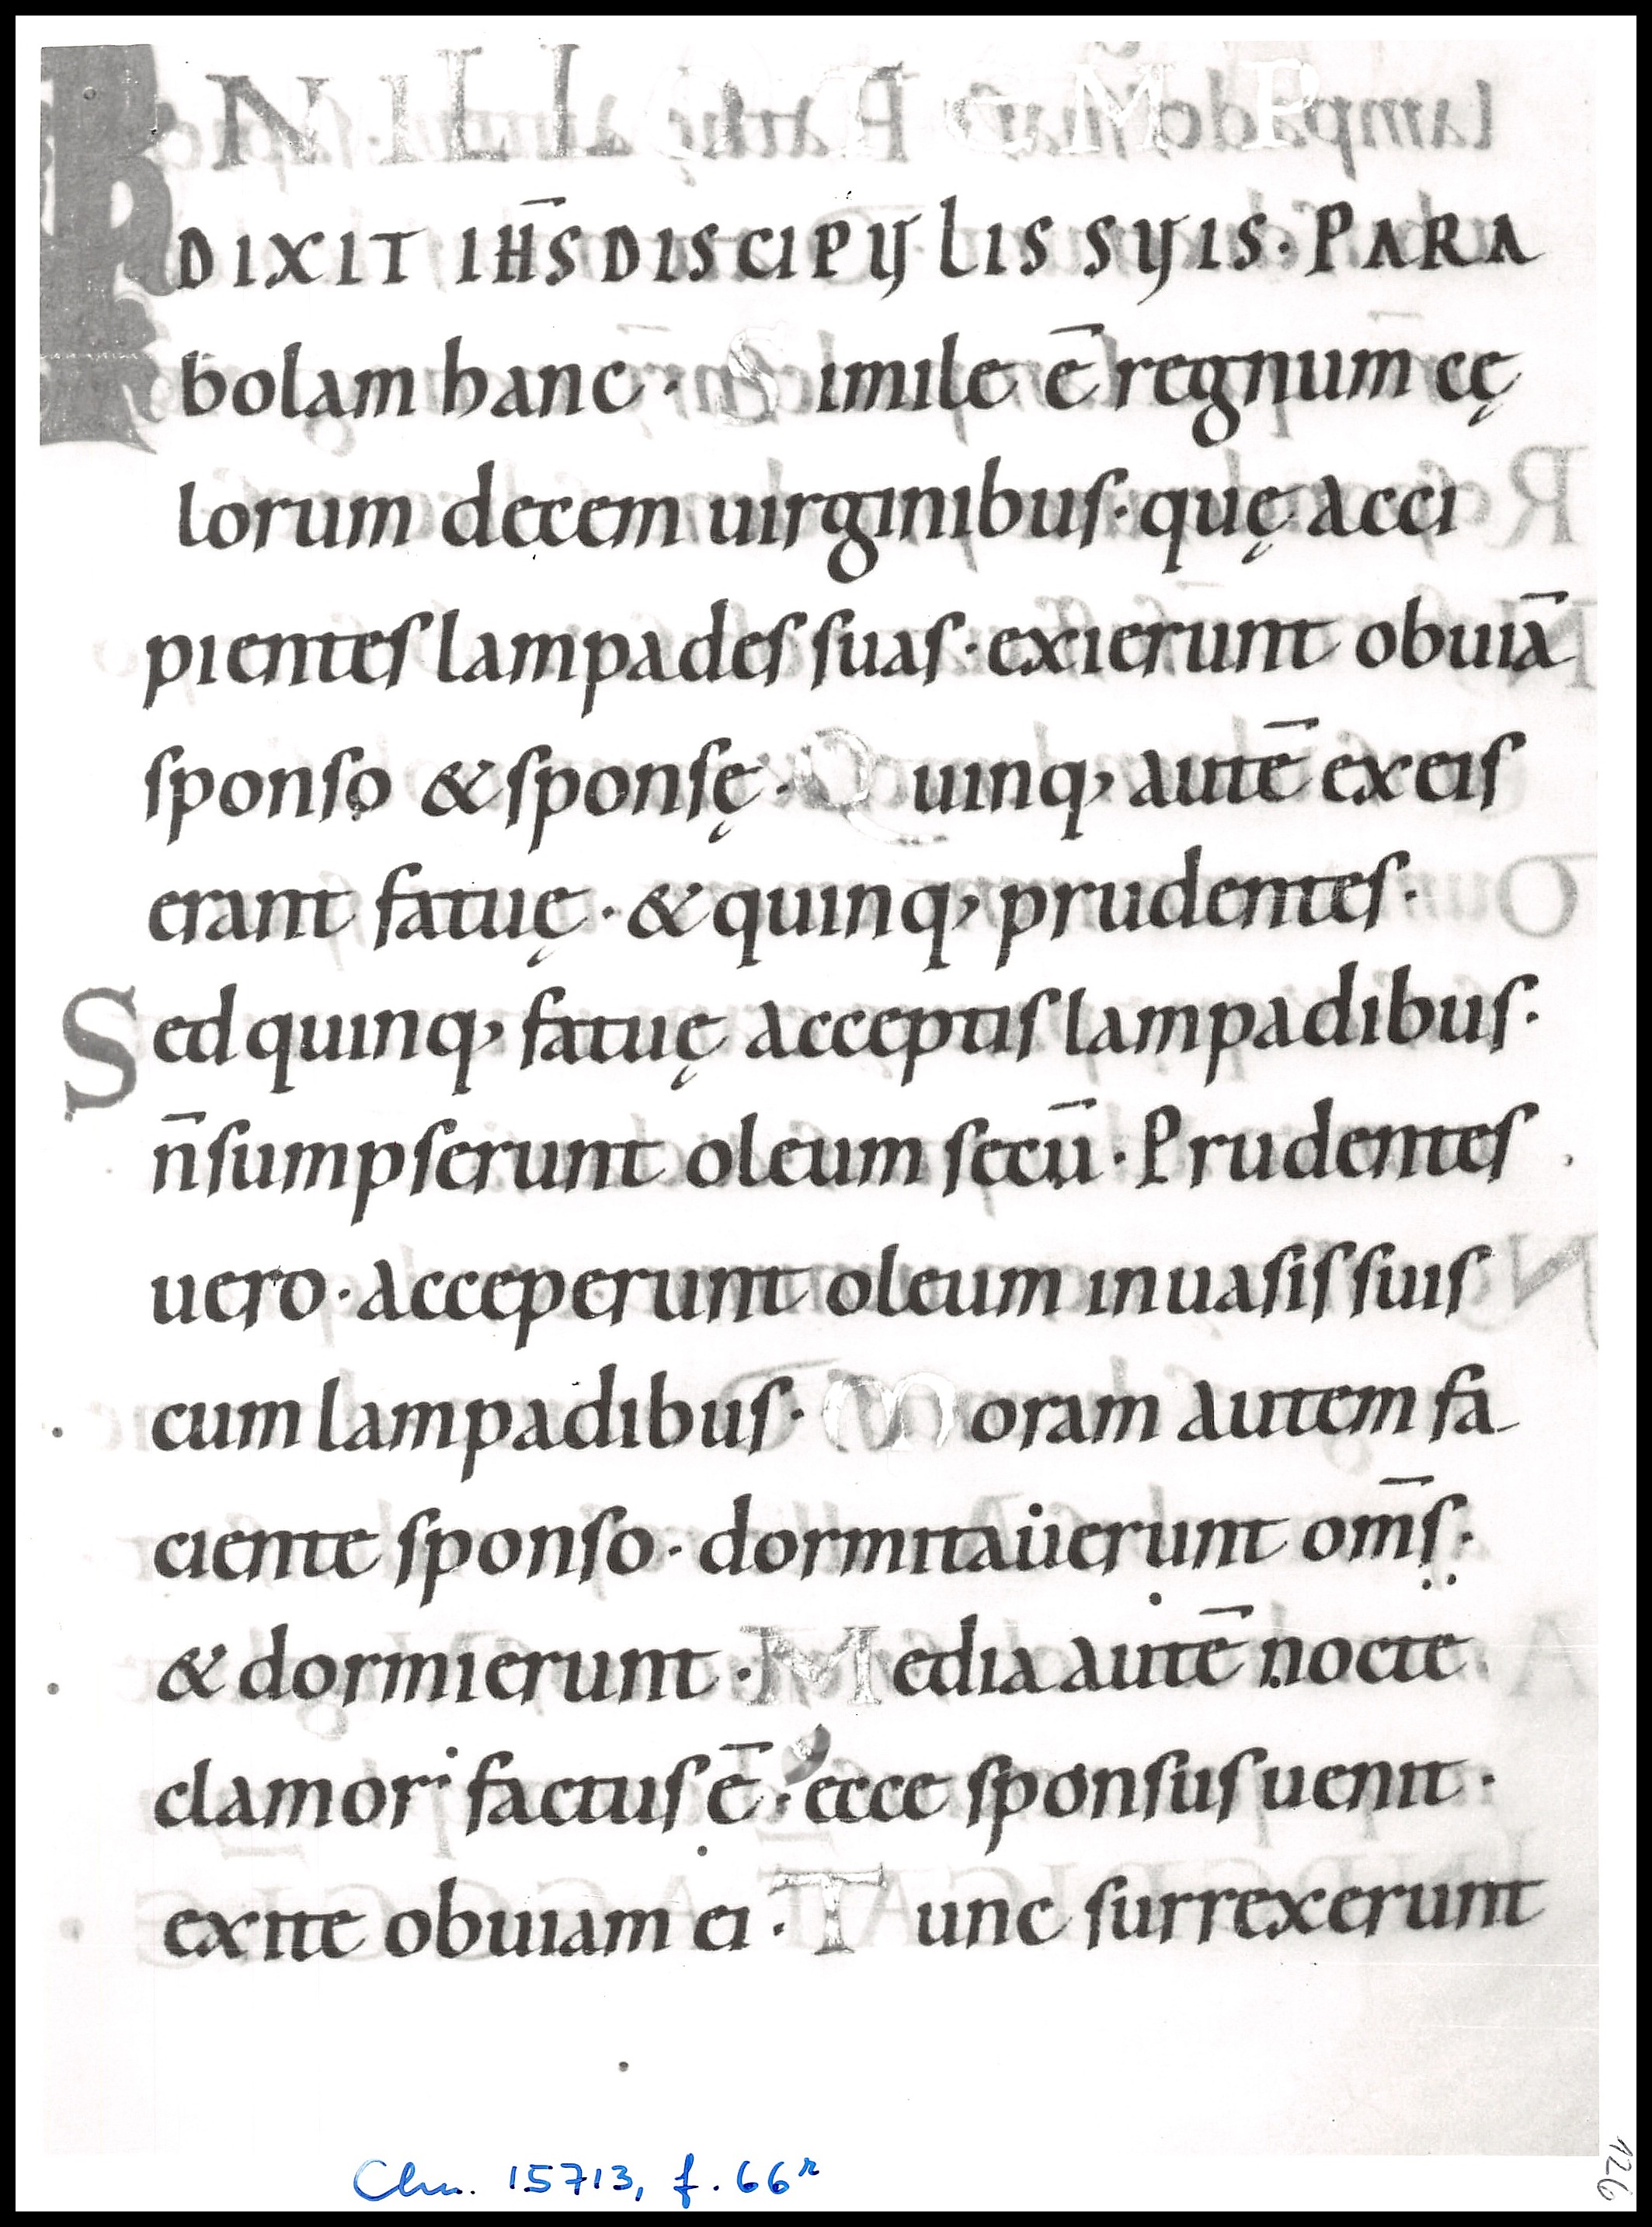 IN ILLO TEMP
DIXIT IHS̄ DISCIPULIS SUIS · PARA
bolam hanc · Simile ē regnum cę
lorum decem uirginibus · quę acci
pientes lampades suas · exierunt obuiā
sponso & sponsę · Quinq; autē ex eis
erant fatuę · & quinq; prudentes ·
Sed quinq; fatuę acceptis lampadibus ·
n̄ sumpserunt oleum secū · Prudentes
uero · acceperunt oleum in uasis suis
cum lampadibus · Moram autem fa
ciente sponso · dormitauerunt om̄s ·
& dormierunt · Media autē nocte
clamor factus ē · ecce sponsus uenit ·
exite obuiam ei · Tunc surrexerunt
Clm. 15713, f. 66r
126